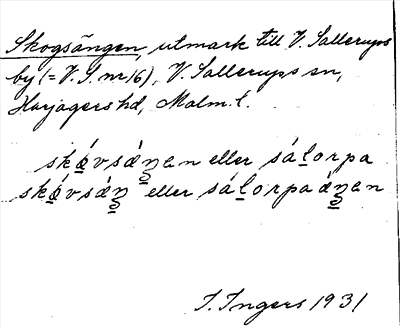 Skogsängen, utmark till V. Sallerups
by (= V. S. nr 16), V. Sallerups sn,
Harjagers hd, Malm. l.
skǿvsǽŋen eller sálorpa
skǿvsǽŋ eller sálorpaǽŋen
I. Ingers 1931